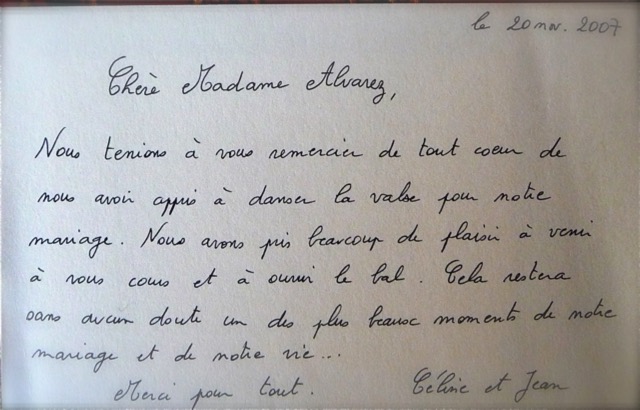 le 20 nov. 2007
Chère Madame Alvarez,
Nous tenions à vous remercier de tout coeur de
nous avoir appris à danser la valse pour notre
mariage. Nous avons pris beaucoup de plaisir à venir
à vos cours et à ouvrir le bal. Cela restera
sans aucun doute un des plus beaux moments de notre
mariage et de notre vie...
Merci pour tout. Céline et Jean